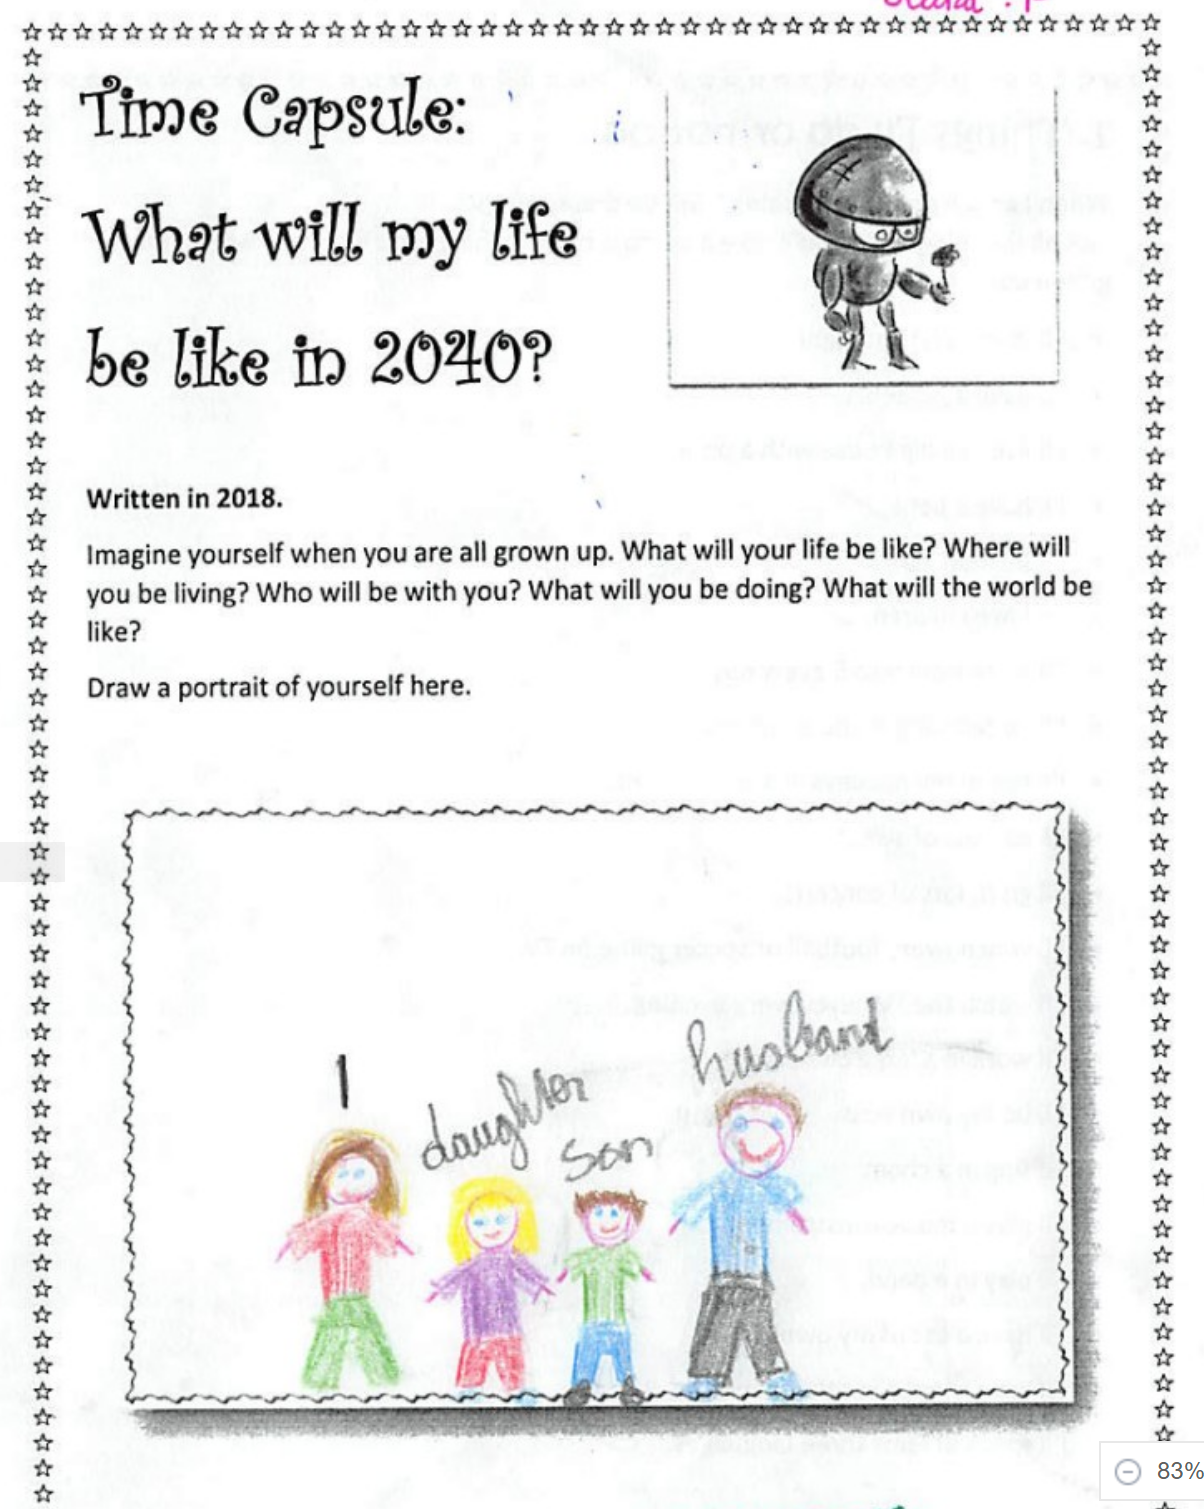 Time Capsule:
What will my life
be like in 2040?
Written in 2018.
Imagine yourself when you are all grown up. What will your life be like? Where will
you be living? Who will be with you? What will you be doing? What will the world be
like?
Draw a portrait of yourself here.
I
daughter
son
husband
83%